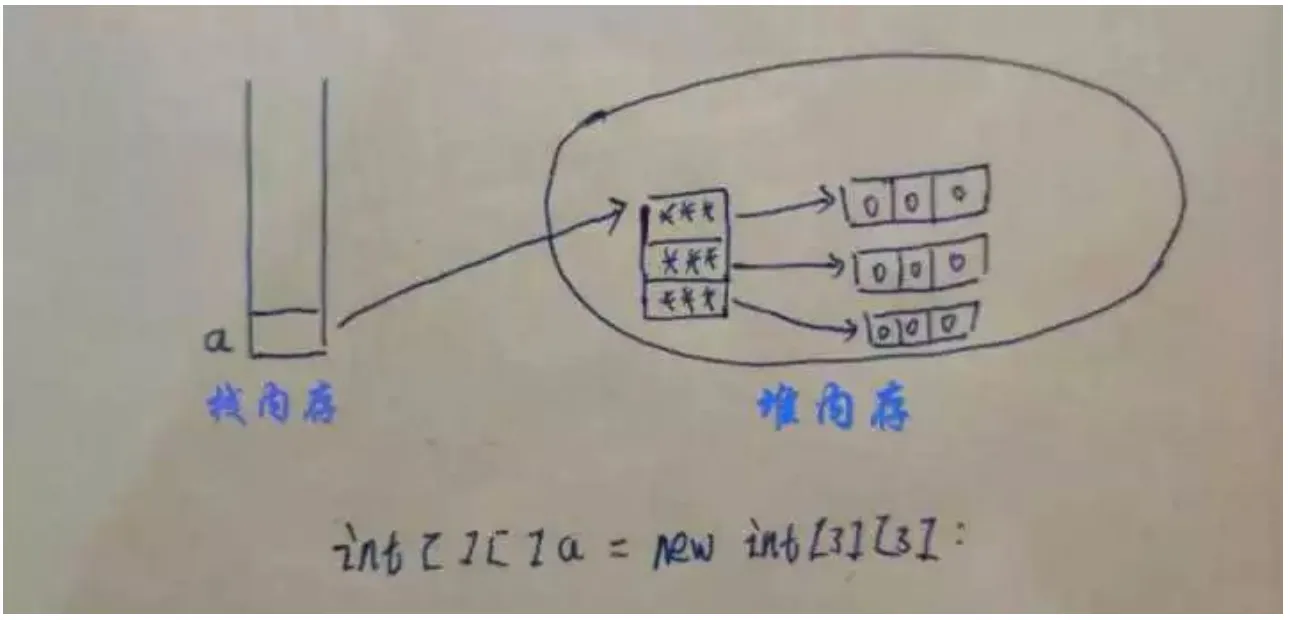 *** 0 0 0
*** 0 0 0
a *** 0 0 0
栈内存 堆内存
int [ ] [ ] a = new int [3] [3] :